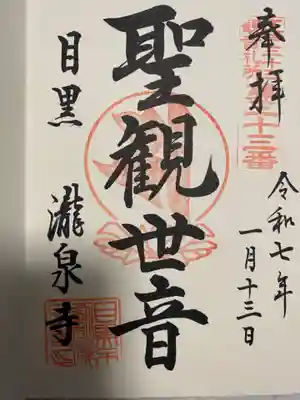 奉拝
令和七年
一月十三日
聖観世音
目黒
瀧泉寺